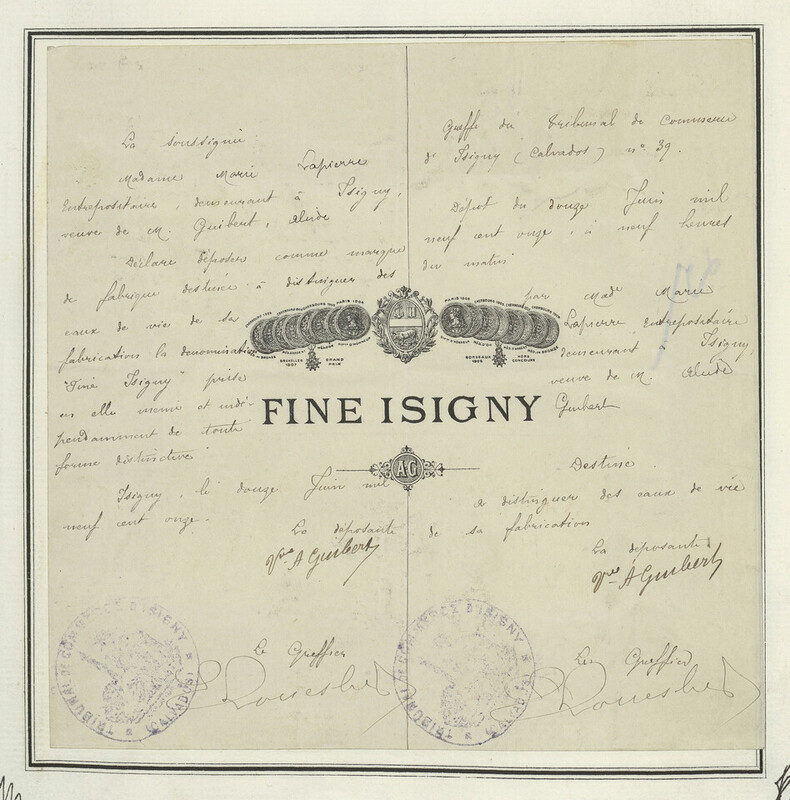 La soussignée
Madame Marie Lapierre
Entrepositaire, demeurant à Isigny,
veuve de M. Guibert, Alcide
Déclare déposer comme marque
de fabrique destinée à distinguer des
eaux de vie de sa
fabrication la dénomination
"Fine Isigny" prise
en elle même et indé-
pendamment de toute
forme distinctive
Isigny, le douze Juin mil
neuf cent onze.
La déposante
Vve A Guibert
Le Greffier
TRIBUNAL DE COMMERCE D'ISIGNY
(CALVADOS)
PARIS 1906
BRUXELLES
1897
GRAND
PRIX
FINE ISIGNY
AG
PARIS 1906
BORDEAUX
1895
HORS
CONCOURS
Greffe du Tribunal de Commerce
d'Isigny (Calvados) n° 39.
Dépot du douze Juin mil
neuf cent onze, à neuf heures
du matin
par Made Marie
Lapierre, Entrepositaire
demeurant à Isigny,
veuve de M. Alcide
Guibert
Destiné
à distinguer des eaux de vie
de sa fabrication
La déposante
Vve A Guibert
Le Greffier
TRIBUNAL DE COMMERCE D'ISIGNY
(CALVADOS)